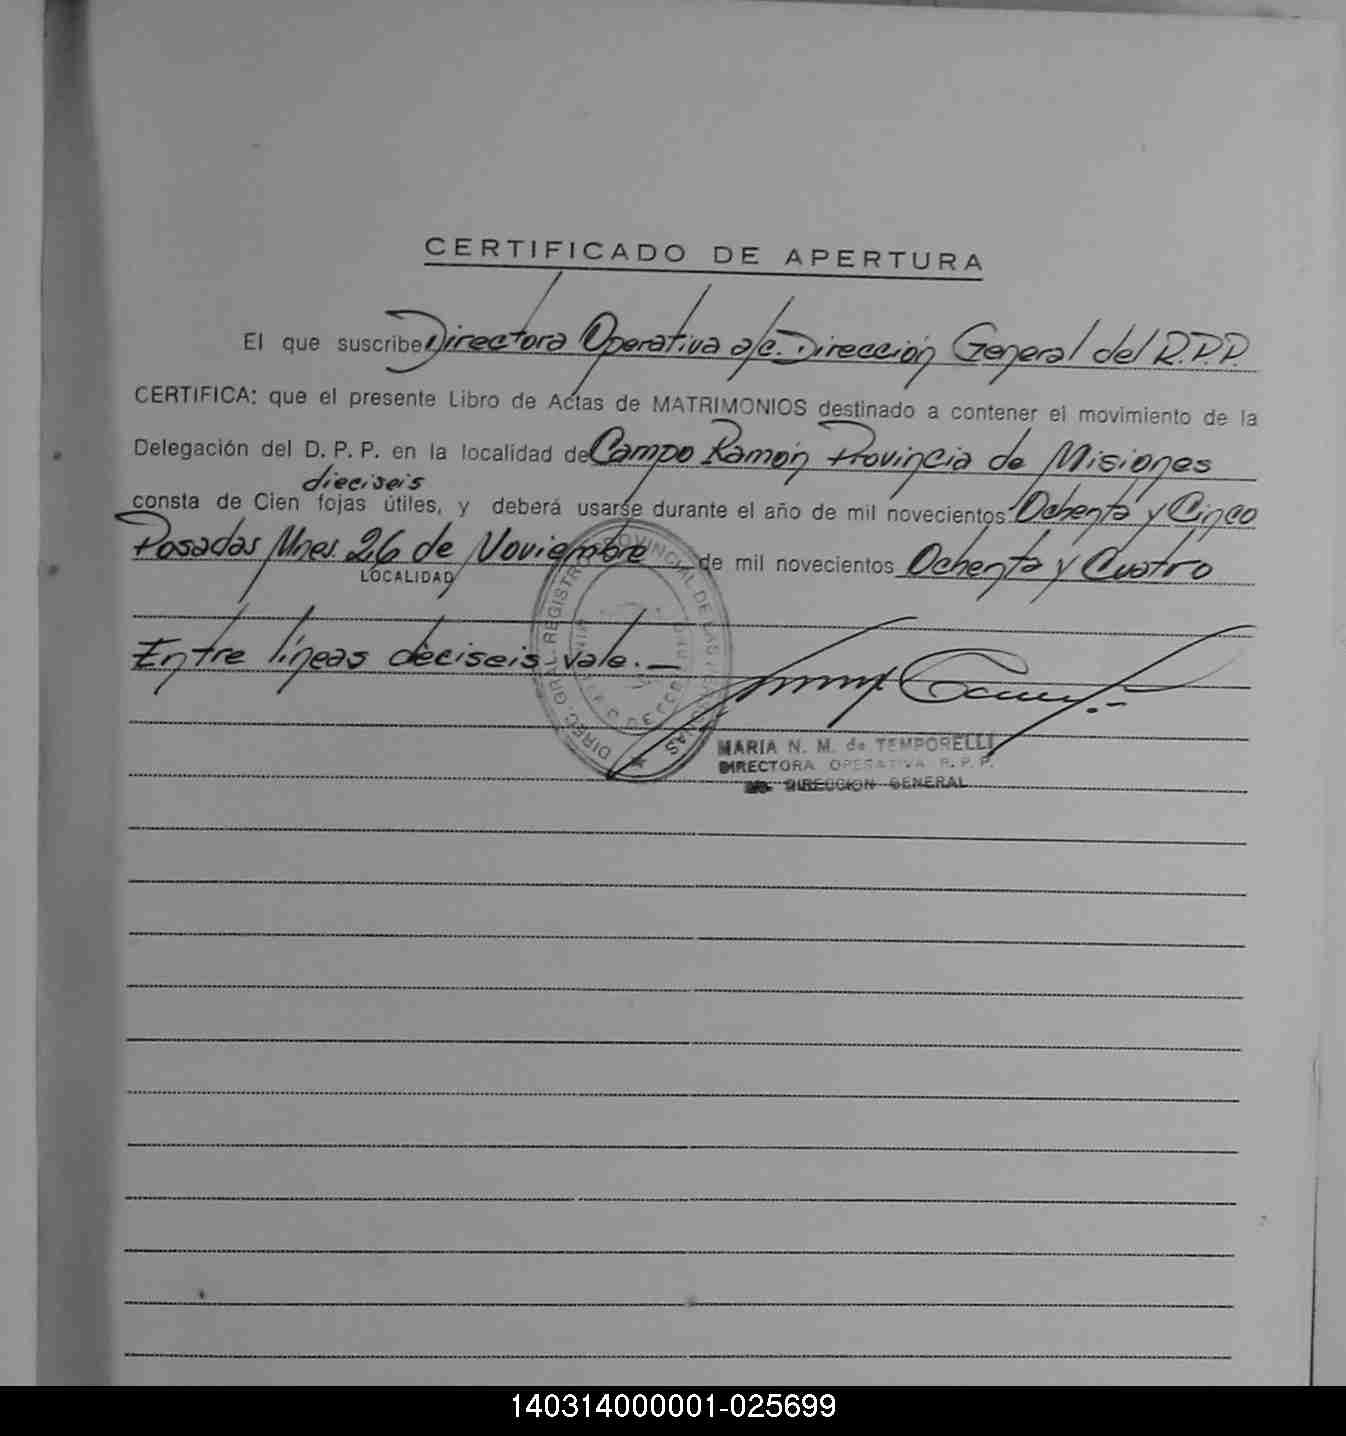 CERTIFICADO DE APERTURA
El que suscribe Directora Operativa a/c. Dirección General del R.P.P.
CERTIFICA: que el presente Libro de Actas de MATRIMONIOS destinado a contener el movimiento de la
Delegación del D. P. P. en la localidad de Campo Ramón Provincia de Misiones
dieciseis
consta de Cien fojas útiles, y deberá usarse durante el año de mil novecientos Ochenta y Cinco
Posadas Mnes. 26 de Noviembre de mil novecientos Ochenta y Cuatro
LOCALIDAD
Entre líneas deciseis vale.—
DIREC. GRAL. REGISTRO PROVINCIAL DE LAS
MARIA N. M. de TEMPORELLI
DIRECTORA OPERATIVA R. P. P.
DIRECCION GENERAL
140314000001-025699